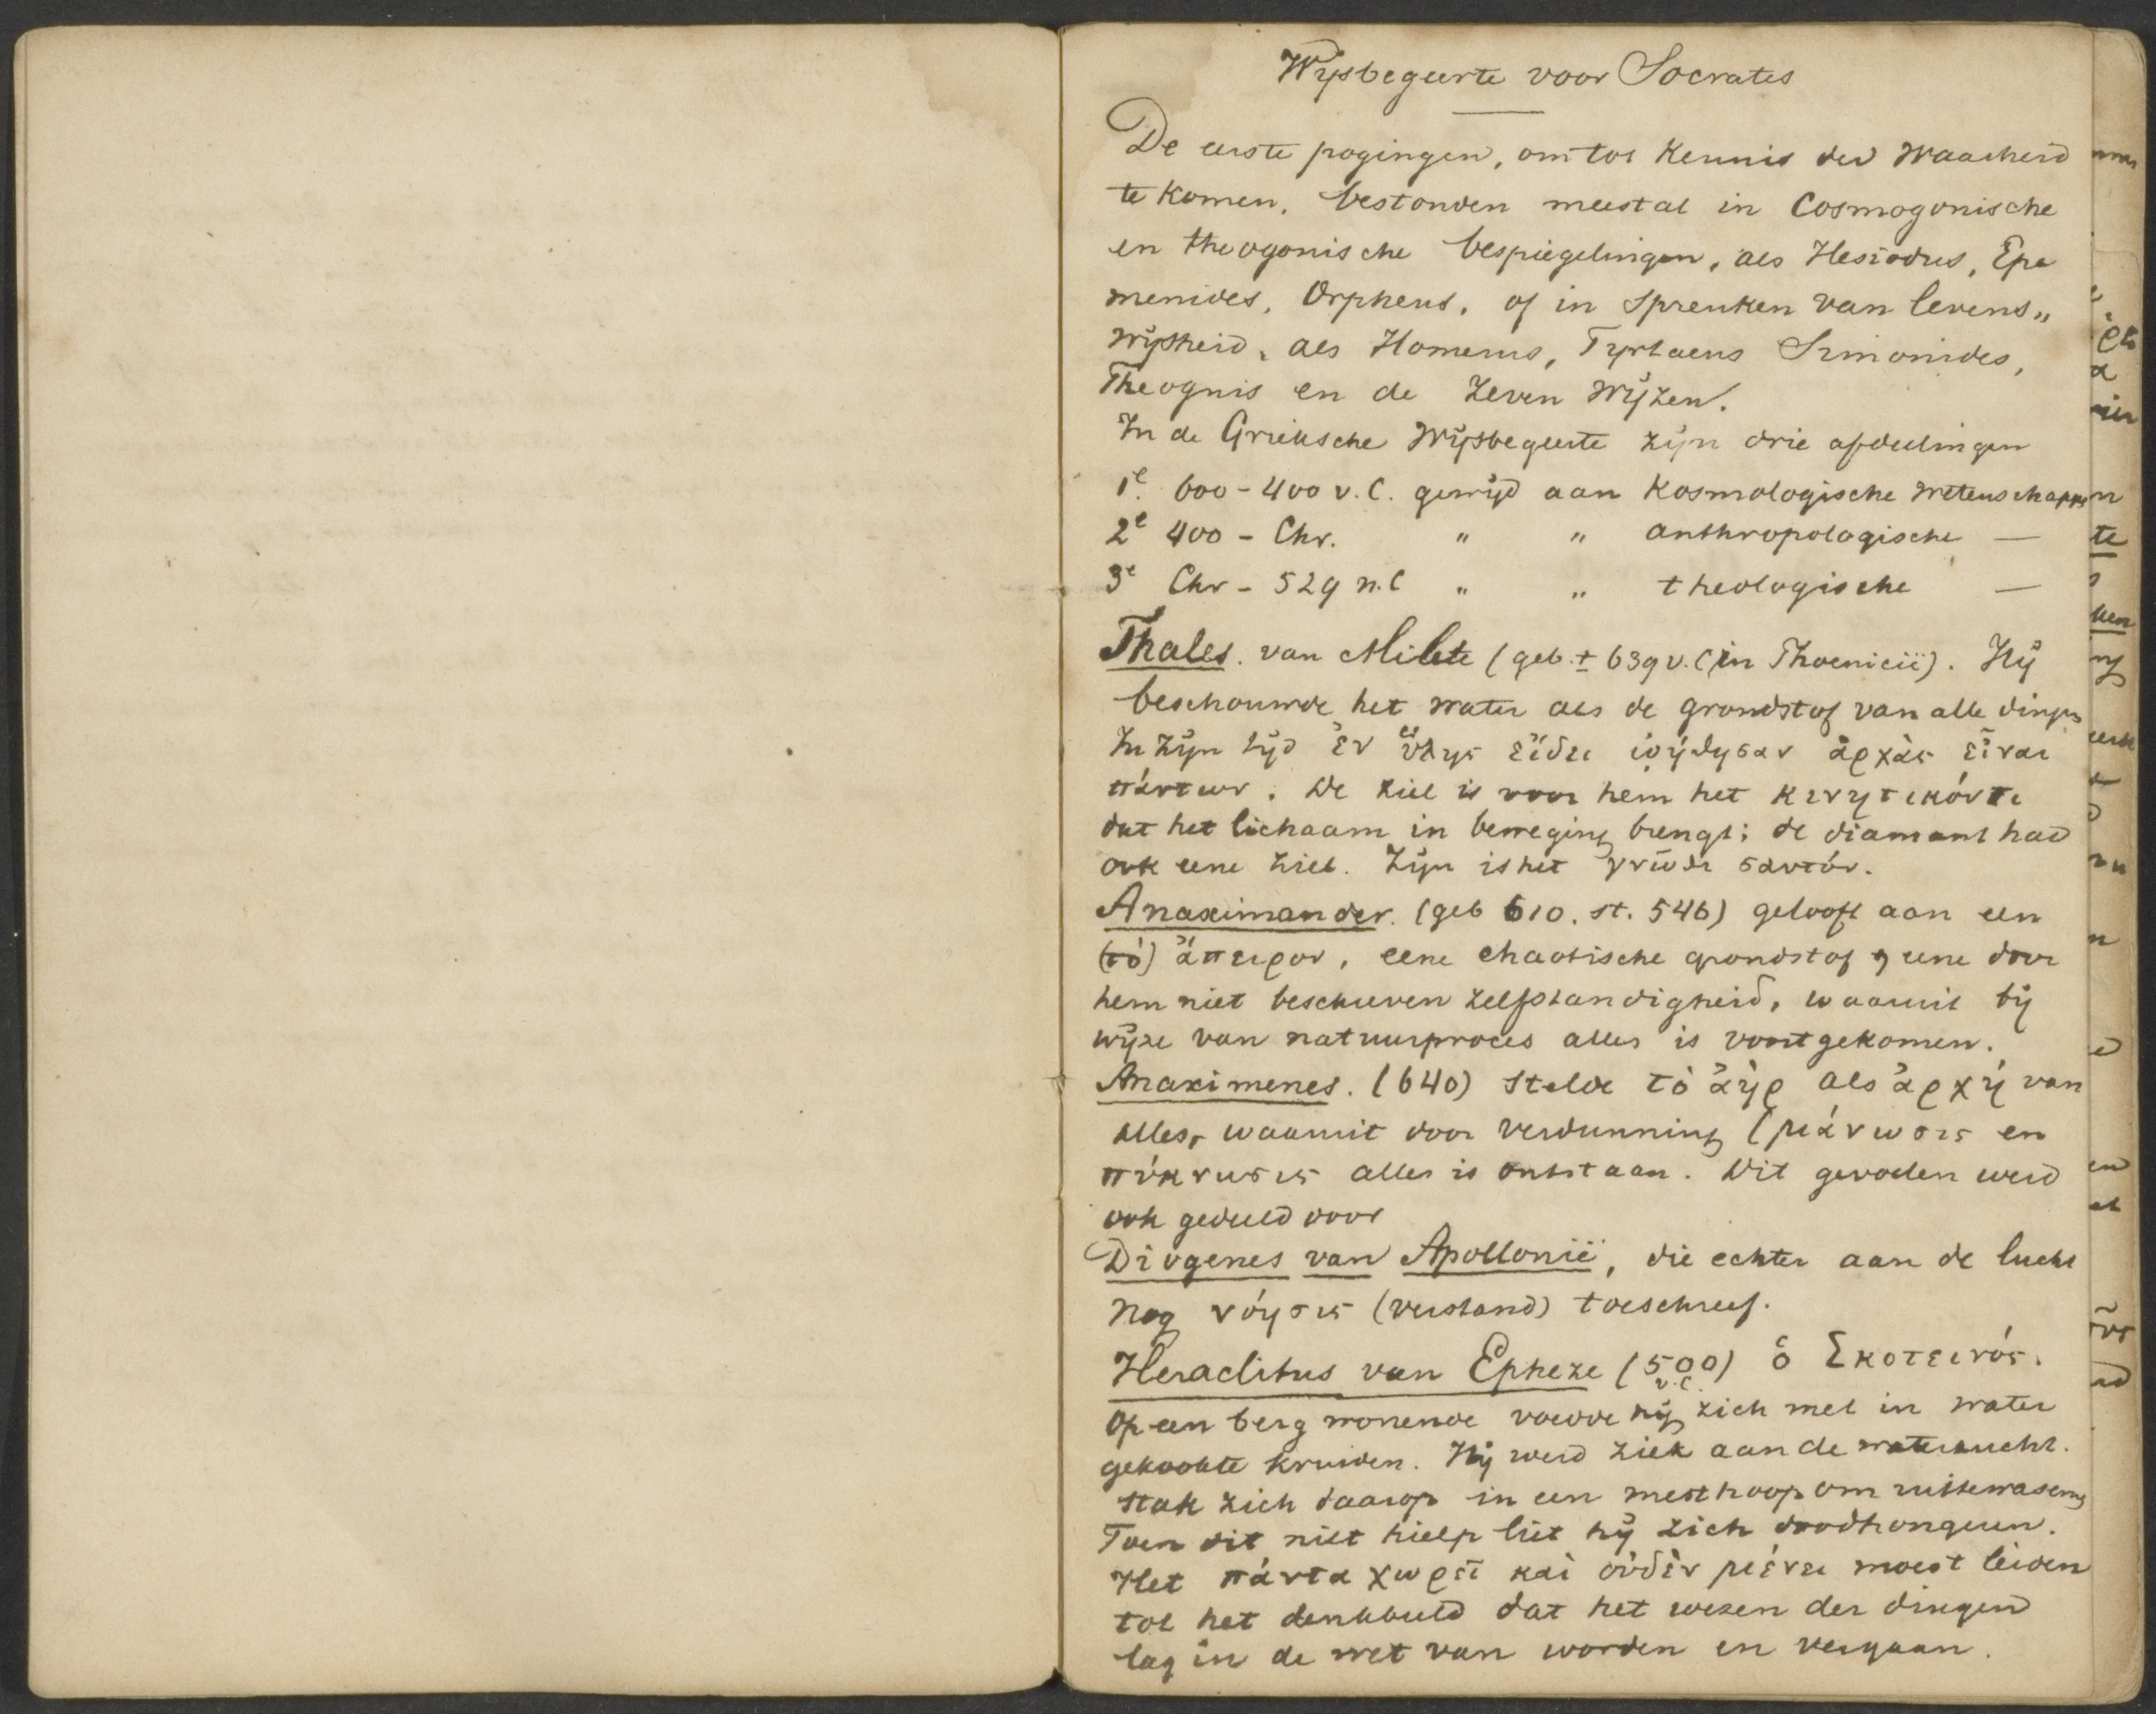 Wijsbegeerte voor Socrates
De eerste pogingen, om tot kennis der waarheid
te komen, bestonden meestal in Cosmogonische
en theogonische bespiegelingen, als Hesiodus, Epe
menides, Orpheus, of in spreuken van levens„
wijsheid, als Homerus, Tyrtaeus Simonides,
Theognis en de zeven wijzen.
In de Grieksche wijsbegeerte zijn drie afdeelingen
1e. 600 - 400 v. C. gewijd aan Kosmologische wetenschappen
2e 400 - Chr. " " anthropologische —
3e Chr - 529 n. C " " theologische —
Thales. van Milete (geb. ± 639 v. C in Phoenicië). Hij
beschouwde het water als de grondstof van alle dingen
In zijn tijd ἐν ὕλης εἴδει ᾠήθησαν ἀρχὰς εἶναι
πάντων. De ziel is voor hem het κινητικόν τι
dat het lichaam in beweging brengt; de diamant had
ook eene ziel. Zijn is het γνῶθι σαυτόν.
Anaximander. (geb 610. st. 546) gelooft aan een
(τὸ) ἄπειρον, eene chaotische grondstof, eene door
hem niet beschreven zelfstandigheid, waaruit bij
wijze van natuurproces alles is voortgekomen.
Anaximenes. (640) stelde τὸ ἀὴρ als ἀρχή van
alles, waaruit door verdunning (μάνωσις en
πύκνωσις alles is ontstaan. Dit gevoelen werd
ook gedeeld door
Diogenes van Apollonië, die echter aan de lucht
nog νόησις (verstand) toeschreef.
Heraclitus van Epheze (500 v. C.) ὁ Σκοτεινός.
Op een berg wonende voedde hij zich met in water
gekookte kruiden. Hij werd ziek aan de waterzucht.
stak zich daarop in een mesthoop om uittewasemen
Toen dit niet hielp liet hij zich doodhongeren.
Het πάντα χωρεῖ καὶ οὐδὲν μένει moest leiden
tot het denkbeeld dat het wezen der dingen
lag in de wet van worden en vergaan.